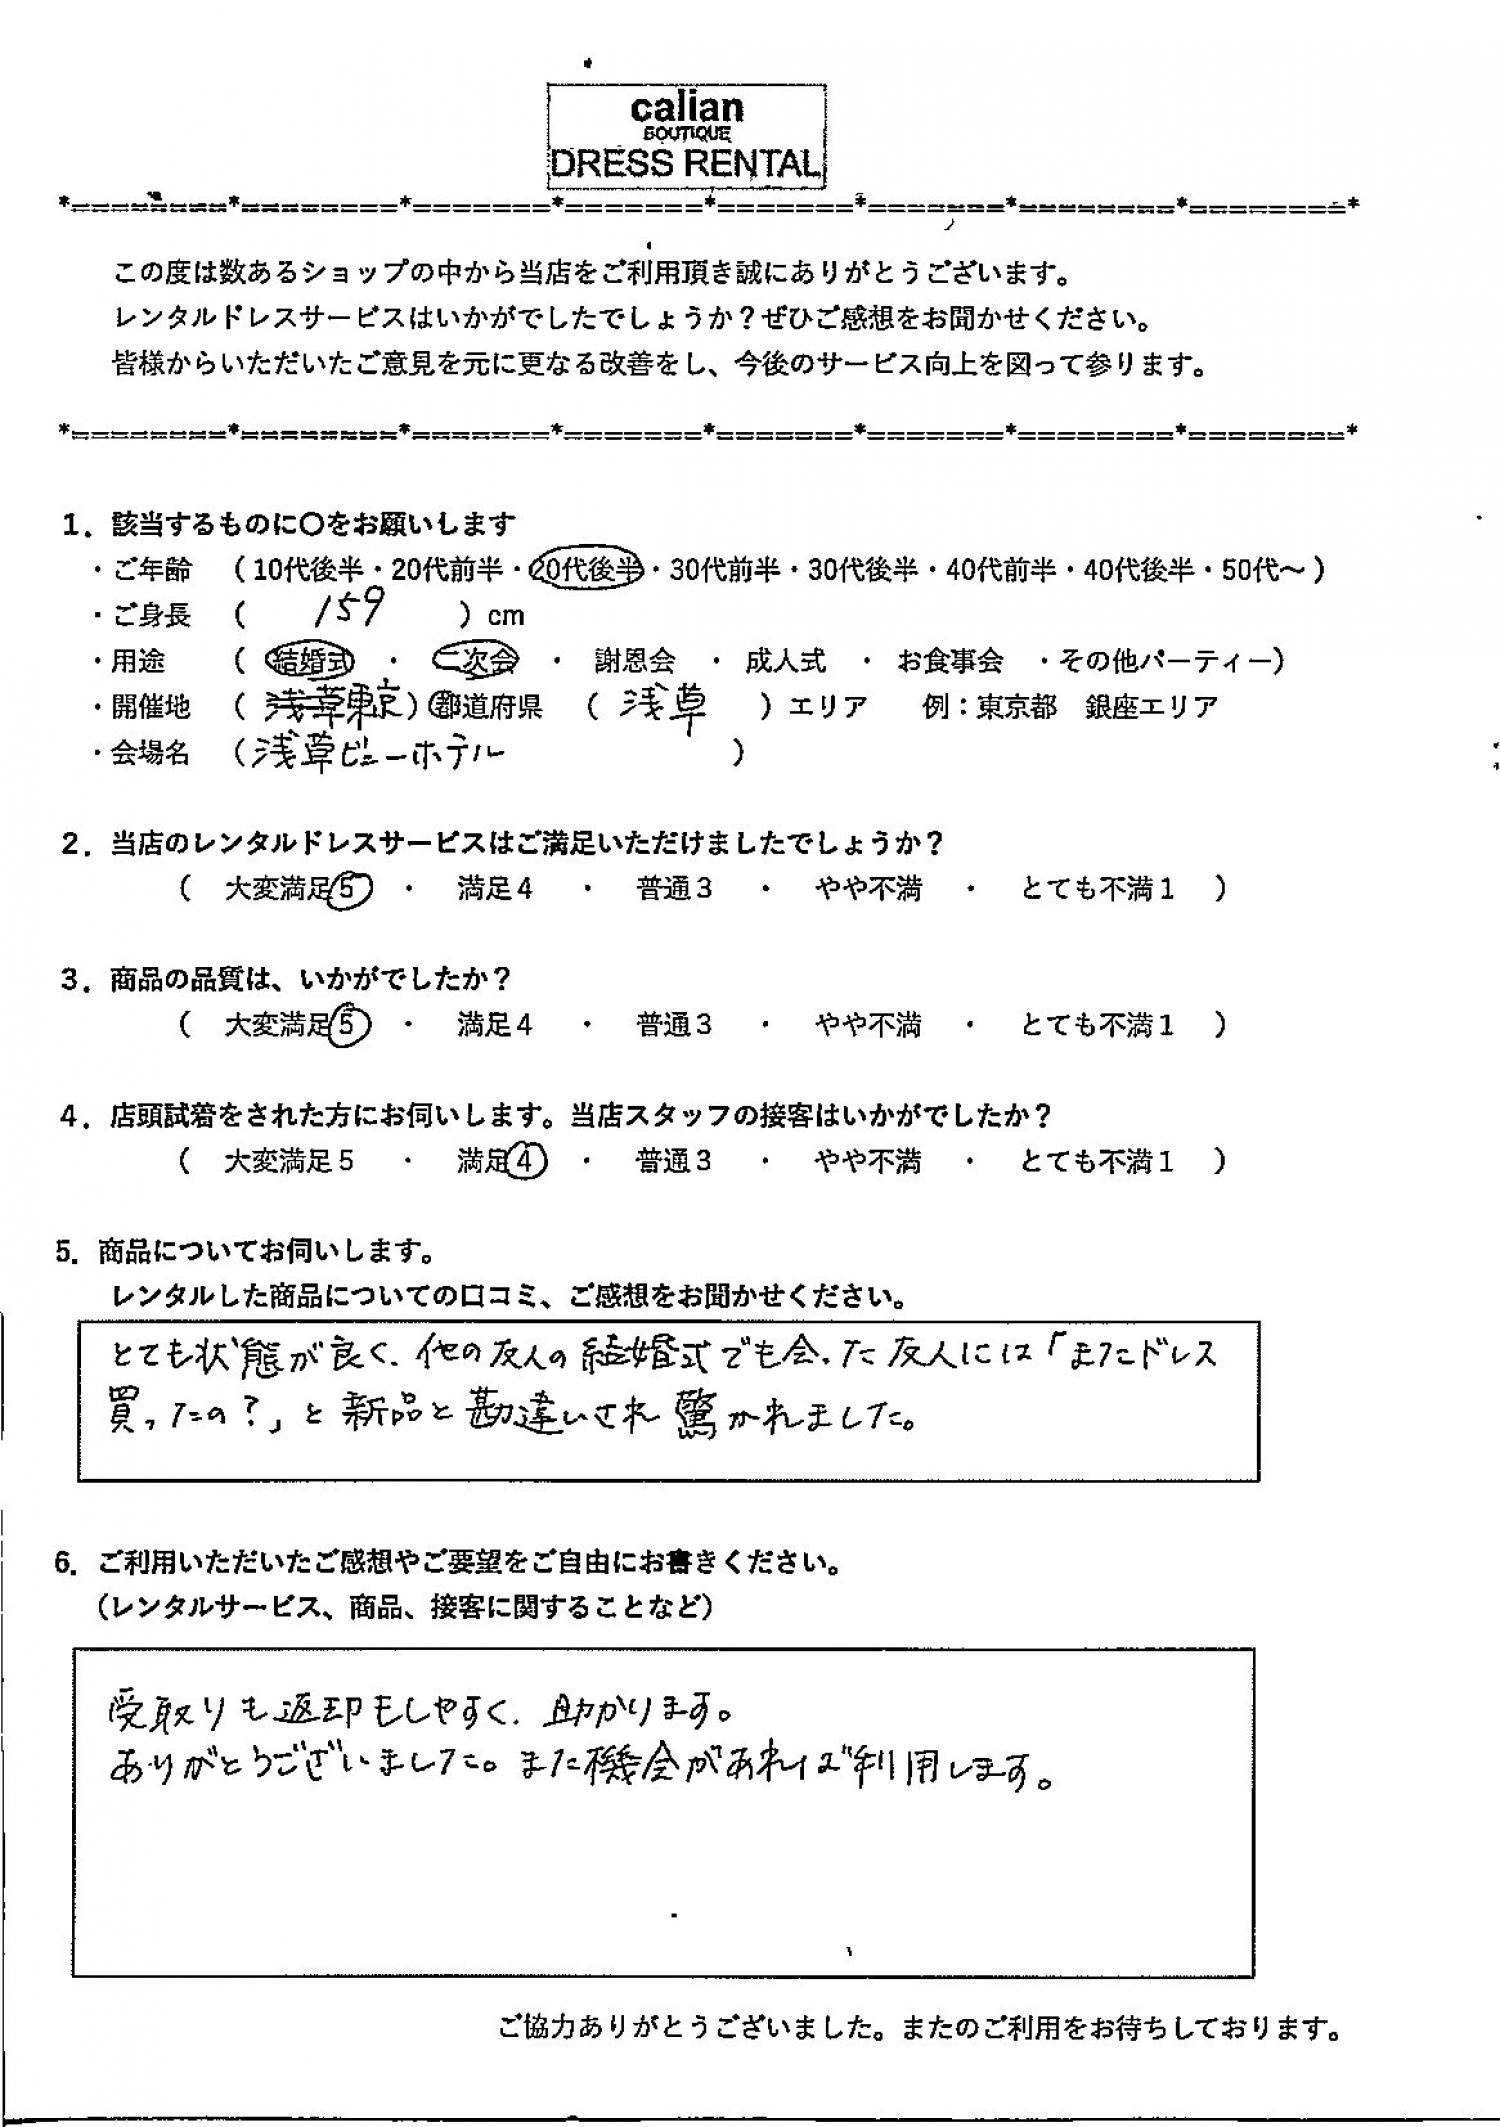 calian
BOUTIQUE
DRESS RENTAL
*========*========*=======*=======*=======*=======*========*========*
この度は数あるショップの中から当店をご利用頂き誠にありがとうございます。
レンタルドレスサービスはいかがでしたでしょうか？ぜひご感想をお聞かせください。
皆様からいただいたご意見を元に更なる改善をし、今後のサービス向上を図って参ります。
*========*========*=======*=======*=======*=======*========*========*
1．該当するものに〇をお願いします
・ご年齢 （10代後半・20代前半・20代後半・30代前半・30代後半・40代前半・40代後半・50代～）
・ご身長 （ 159 ）cm
・用途 （ 結婚式 ・ 二次会 ・ 謝恩会 ・ 成人式 ・ お食事会 ・その他パーティー）
・開催地 （ 浅草東京）都道府県 （ 浅草 ）エリア 例：東京都 銀座エリア
・会場名 （浅草ビューホテル ）
2．当店のレンタルドレスサービスはご満足いただけましたでしょうか？
（ 大変満足5 ・ 満足4 ・ 普通3 ・ やや不満 ・ とても不満1 ）
3．商品の品質は、いかがでしたか？
（ 大変満足5 ・ 満足4 ・ 普通3 ・ やや不満 ・ とても不満1 ）
4．店頭試着をされた方にお伺いします。当店スタッフの接客はいかがでしたか？
（ 大変満足5 ・ 満足4 ・ 普通3 ・ やや不満 ・ とても不満1 ）
5．商品についてお伺いします。
レンタルした商品についての口コミ、ご感想をお聞かせください。
とても状態が良く、他の友人の結婚式でも会った友人には「またドレス
買ったの？」と新品と勘違いされ驚かれました。
6．ご利用いただいたご感想やご要望をご自由にお書きください。
（レンタルサービス、商品、接客に関することなど）
受取りも返却もしやすく、助かります。
ありがとうございました。また機会があれば利用します。
ご協力ありがとうございました。またのご利用をお待ちしております。